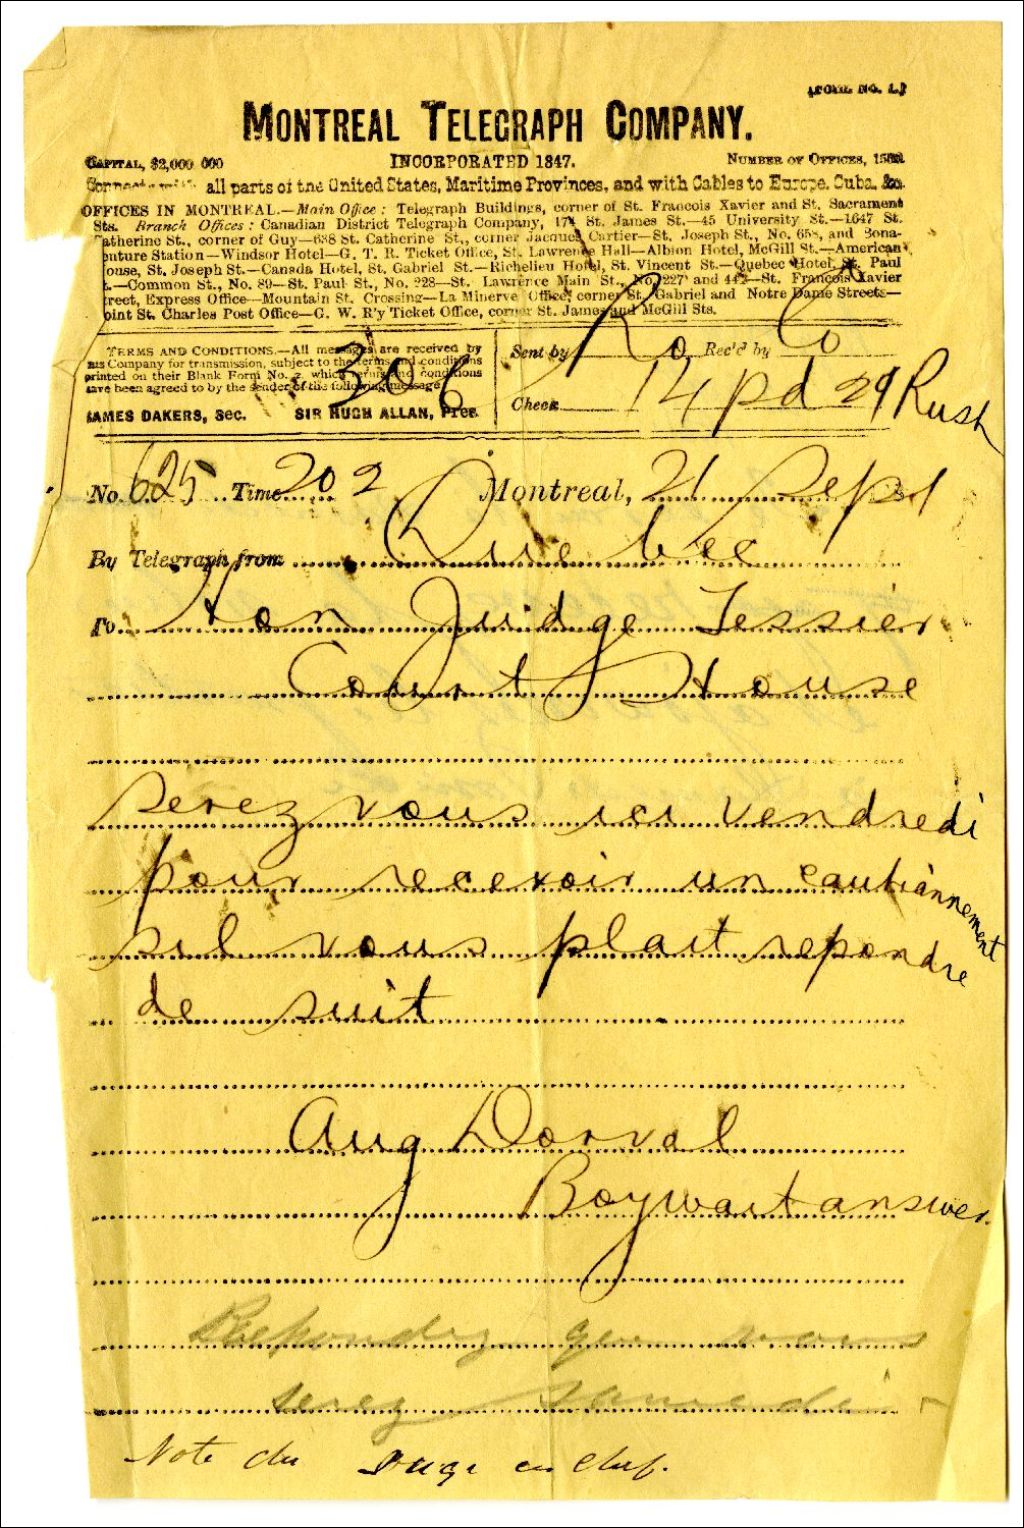 (FORM NO. 1.)
MONTREAL TELEGRAPH COMPANY.
CAPITAL, $2,000 000 INCORPORATED 1847. NUMBER OF OFFICES,
all parts of the United States, Maritime Provinces, and with Cables to Europe. Cuba. &c.
OFFICES IN MONTREAL.—Main Office: Telegraph Buildings, corner of St. Francois Xavier and St. Sacrament
Sts. Branch Offices: Canadian District Telegraph Company, 174 St. James St.—45 University St.—1647 St.
atherine St., corner of Guy—638 St. Catherine St., corner Jacques Cartier—St. Joseph St., No. and Bona-
enture Station—Windsor Hotel—G. T. R. Ticket Office, St. Lawrence Hall—Albion Hotel, McGill St.—American
ouse, St. Joseph St.—Canada Hotel, St. Gabriel St.—Richelieu Hotel, St. Vincent St.—Quebec Hotel, St. Paul
t.—Common St., No. 89—St. Paul St., No. 228—St. Lawrence Main St., No. 227 and St. François Xavier
treet, Express Office—Mountain St. Crossing—La Minerve Office, corner St. Gabriel and Notre Dame Streets—
oint St. Charles Post Office—G. W. R'y Ticket Office, corner St. James and McGill Sts.
TERMS AND CONDITIONS.—All messages are received by
his Company for transmission, subject to the terms and conditions
printed on their Blank Form No. 2, which terms and conditions
have been agreed to by the sender of the following message
JAMES DAKERS, Sec. SIR HUGH ALLAN, Pres.
306
Sent by Ro Rec'd by Co
Check 14 pd 29 Rush
No. 625 Time 202 Montreal, 21 Sept
By Telegraph from Quebec
To Hon Judge Tessier
Court House
serez vous ici vendredi
pour recevoir un cautiannement
sil vous plait repondre
de suit
Aug Dorval
Boy wait answer.
Repondez que vous
serez samedi
Note du Juge en chef.